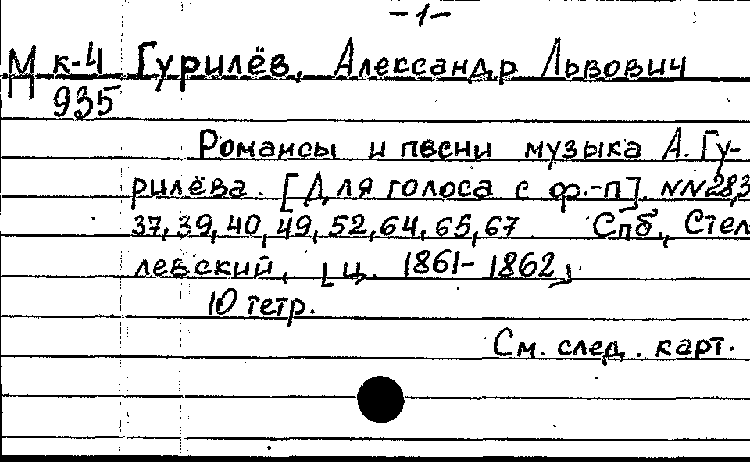 -1-
М к-4 Гурилёв, Александр Львович
935
Романсы и песни музыка А. Гу-
рилёва. [Для голоса с ф.-п]. NN 28,3
37, 39, 40, 49, 52, 64, 65, 67 Спб., Стел
ловский, [ц. 1861-1862]
10 тетр.
См. след. карт.